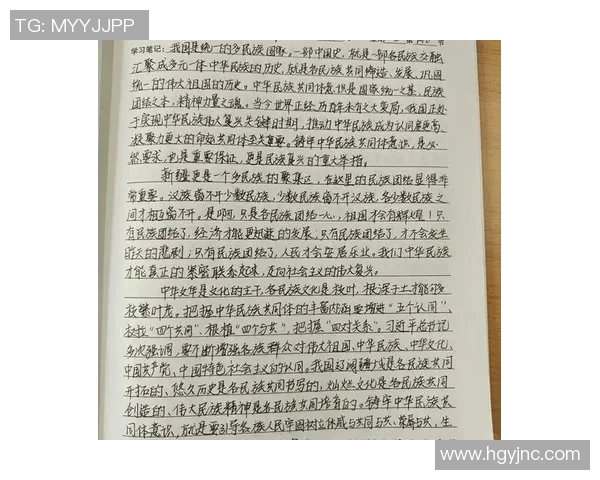 TG: MYYJJPP
学习笔记：我国是统一的多民族国家。一部中国史，就是一部各民族交融
汇聚成多元一体中华民族的历史，就是各民族共同缔造、发展、巩固
统一的伟大祖国的历史。中华民族共同体意识是国家统一之基、民族
团结之本、精神力量之魂。当今世界正经历百年未有之大变局，我国正处
于实现中华民族伟大复兴关键时期，推动中华民族成为认同度更高、
凝聚力更大的命运共同体至关重要。铸牢中华民族共同体意识，是必
然要求，也是重要保证，更是民族复兴的重大举措。
新疆更是一个多民族的聚集区，在这里的民族团结显得非
常重要。汉族离不开少数民族，少数民族离不开汉族，各少数民族之
间才相互离不开。是啊，只是各民族团结一心，祖国才会有辉煌！只
有民族团结了，经济才能更迅速的发展；只有民族团结了，才不会发生
昨天的悲剧；只有民族团结了，人民才会安居乐业。我们中华民族
才能真正的紧密联系起来，走向社会主义的伟大复兴。
中华文华是文化的主干，各民族文化是枝叶，根深干土才能够
枝繁叶茂。把握中华民族共同体的丰富内涵要增进“五个认同”、
树立“四个共同”、根植“四个与共”，把握“四对关系”。习近平总书记
多次强调，要不断增强各族群众对伟大祖国、中华民族、中华文化、
中国共产党、中国特色社会主义的认同。我国辽阔疆域是各民族共同
开拓的、悠久历史是各民族共同书写的、灿烂文化是各民族共同
创造的、伟大民族精神是各民族共同培育的。铸牢中华民族共
同体意识，就是要引导各族人民牢固树立休戚与共、荣辱与共、生
www.hgyjnc.com